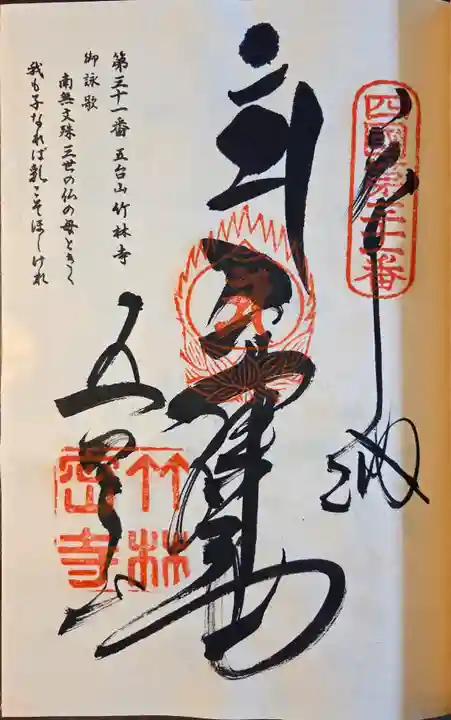 四國第三十一番
奉納
五台山
竹林
密寺
第三十一番 五台山 竹林寺
御詠歌
南無文殊三世の仏の母ときく
我も子なれば乳こそほしけれ